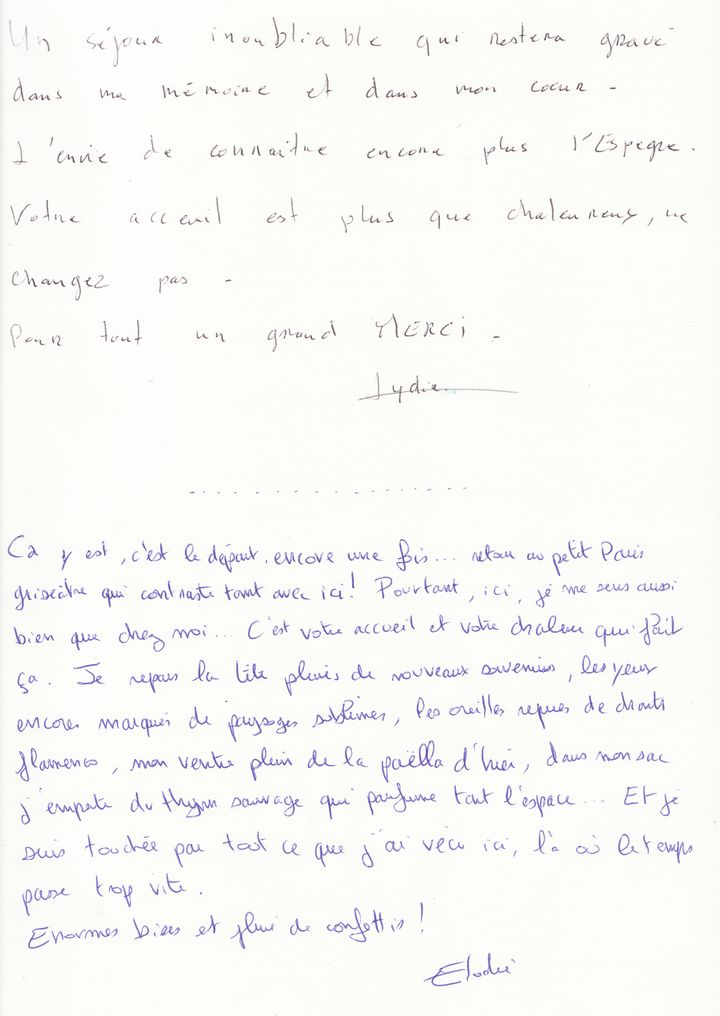 Un séjour inoubliable qui restera gravé
dans ma mémoire et dans mon coeur -
L'envie de connaitre encore plus l'Espagne.
Votre acceuil est plus que chaleureux, ne
changez pas -
Pour tout un grand MERCi -
Lydie
Ca y est, c'est le départ, encore une fois... retour au petit Paris
griseâtre qui contraste tant avec ici! Pourtant, ici, je me sens aussi
bien que chez moi... C'est votre accueil et votre chaleur qui fait
ça. Je repars la tête pleine de nouveaux souvenirs, les yeux
encores marqués de paysages sublimes, les oreilles repues de chants
flamenco, mon ventre plein de la paëlla d'hier, dans mon sac
j'emporte du thym sauvage qui parfume tout l'espace... Et je
suis touchée par tout ce que j'ai vécu ici, là où le temps
passe trop vite.
Enormes bises et pluie de confettis!
Elodie